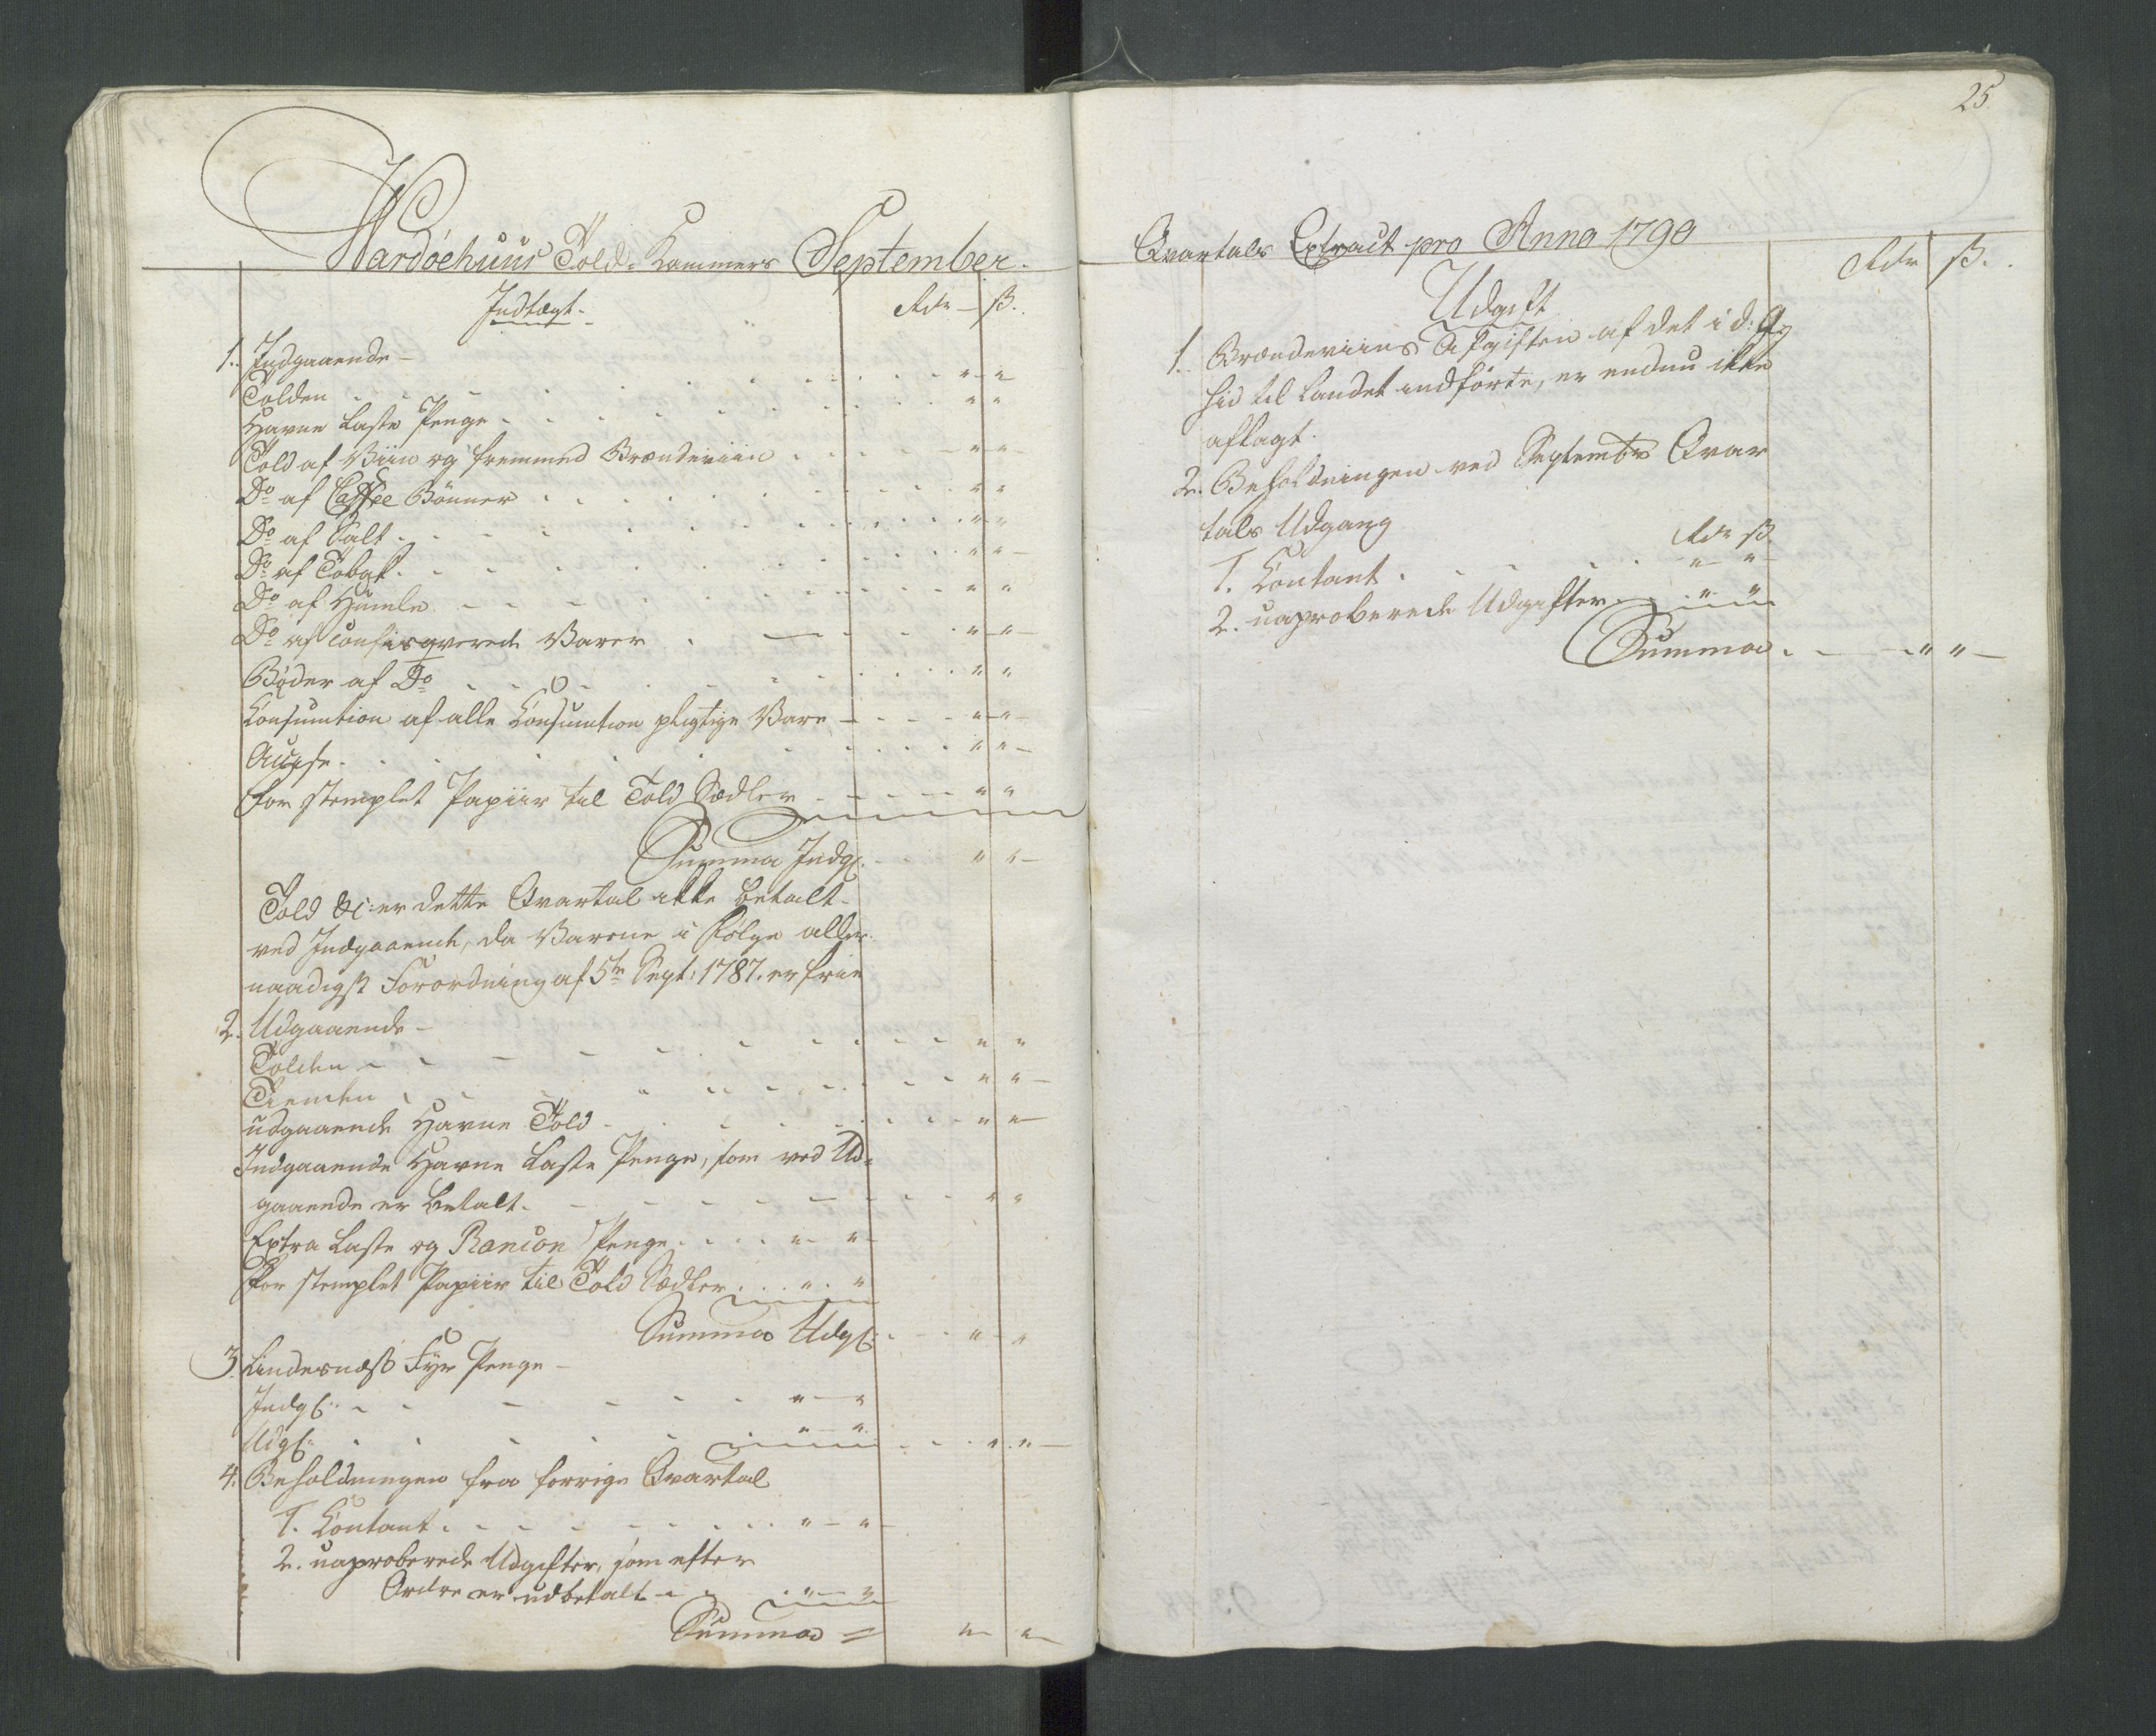 Wardöehuus Told-Kammers September
Indtægt.
Rdr ß.
1. Indgaaende
Tolden " "
Havne Laste Penge " "
Told af Viin og fremmed Brændeviin " "
Do af Caffee Bönner " "
Do af Salt " "
Do af Tobak " "
Do af Humle " "
Do af Confisqverede Varer " "
Böder af Do " "
Consumtion af alle Consumtion pligtige Vare " "
Accise " "
for stemplet Papiir til Told Sædler " "
Summa Indg: " "
Told &c: er dette Qvartal ikke betalt
ved Indgaaende, da Varene i Fölge aller-
naadigst Forordning af 5te Sept: 1787. er frie
2. Udgaaende
Tolden " "
Tienden " "
udgaaende Havne Told " "
Indgaaende Havne Laste Penge, som ved Ud-
gaaende er betalt " "
Extra Laste og Rancon Penge " "
For stemplet Papiir til Told Sædler " "
Summa Udg: " "
3. Lindesnæss Fyr Penge
Indg: " "
Udg: " "
4. Beholdningen fra forrige Qvartal
1. Contant " "
2. uaproberede Udgifter, som efter
Ordre er udbetalt " "
Summa = " "
25.
Qvartals Extract pro Anno 1790
Rdr ß.
Udgift
1. Brændeviins Afgiften af det i d:
hid til Landet indförte, er endnu ikke
aflagt.
2. Beholdningen ved Septembr Qvar
tals Udgang
Rdr ß
1. Contant " "
2. uaproberede Udgifter " "
Summa " "